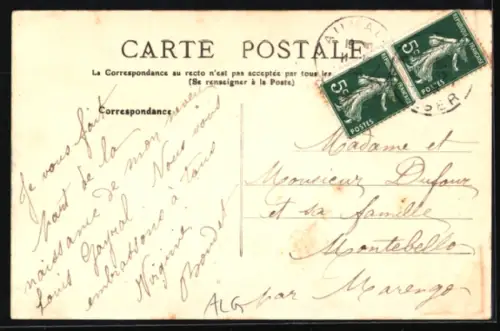 CARTE POSTALE
La Correspondance au recto n'est pas acceptée par tous les
(Se renseigner à la Poste)
Correspondance
Je vous fait
part de la
naissance de mon neveu
Louis Gayral Nous vous
embrassons à tous
Virginie
Bondet
AUMAL
ALGER
5c
POSTES
5c
POSTES
Madame et
Monsieur Dufour
et sa famille
Montebello
par Marengo
ALG